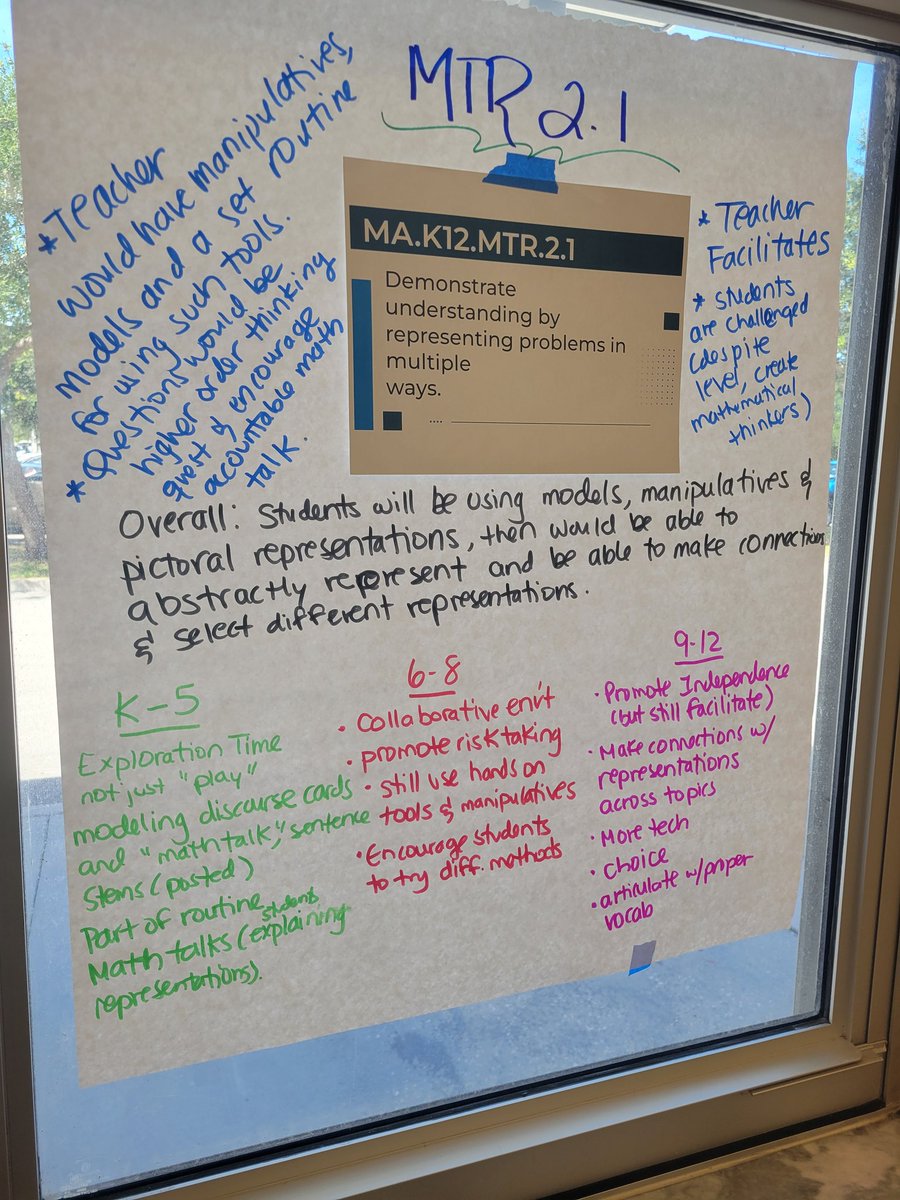 MTR 2.1
* Teacher
would have manipulatives,
models and a set routine
for using such tools.
* Questions would be
higher order thinking
quest & encourage
accountable math
talk.
MA.K12.MTR.2.1
Demonstrate
understanding by
representing problems in
multiple
ways.
* Teacher
Facilitates
* students
are challenged
(despite
level, create
mathematical
thinkers)
Overall: Students will be using models, manipulatives &
pictoral representations, then would be able to
abstractly represent and be able to make connections
& select different representations.
K-5
Exploration Time
not just "play"
modeling discourse cards
and "math talk," sentence
stems (posted)
Part of routine
Math talks (students explaining
representations).
6-8
• Collaborative env't
• promote risk taking
• still use hands on
tools & manipulatives
• Encourage students
to try diff. methods
9-12
• Promote Independence
(but still facilitate)
• Make connections w/
representations
across topics
• More tech
• Choice
• articulate w/proper
vocab